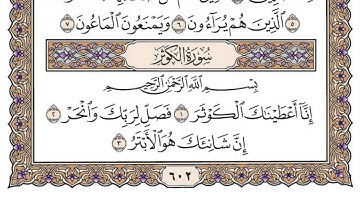 ٱلَّذِينَ هُمْ يُرَآءُونَ ٦ وَيَمْنَعُونَ ٱلْمَاعُونَ ٧
سُورَةُ ٱلْكَوْثَرِ
بِسْمِ ٱللَّهِ ٱلرَّحْمَٰنِ ٱلرَّحِيمِ
إِنَّآ أَعْطَيْنَٰكَ ٱلْكَوْثَرَ ١ فَصَلِّ لِرَبِّكَ وَٱنْحَرْ ٢
إِنَّ شَانِئَكَ هُوَ ٱلْأَبْتَرُ ٣
٦٠٢